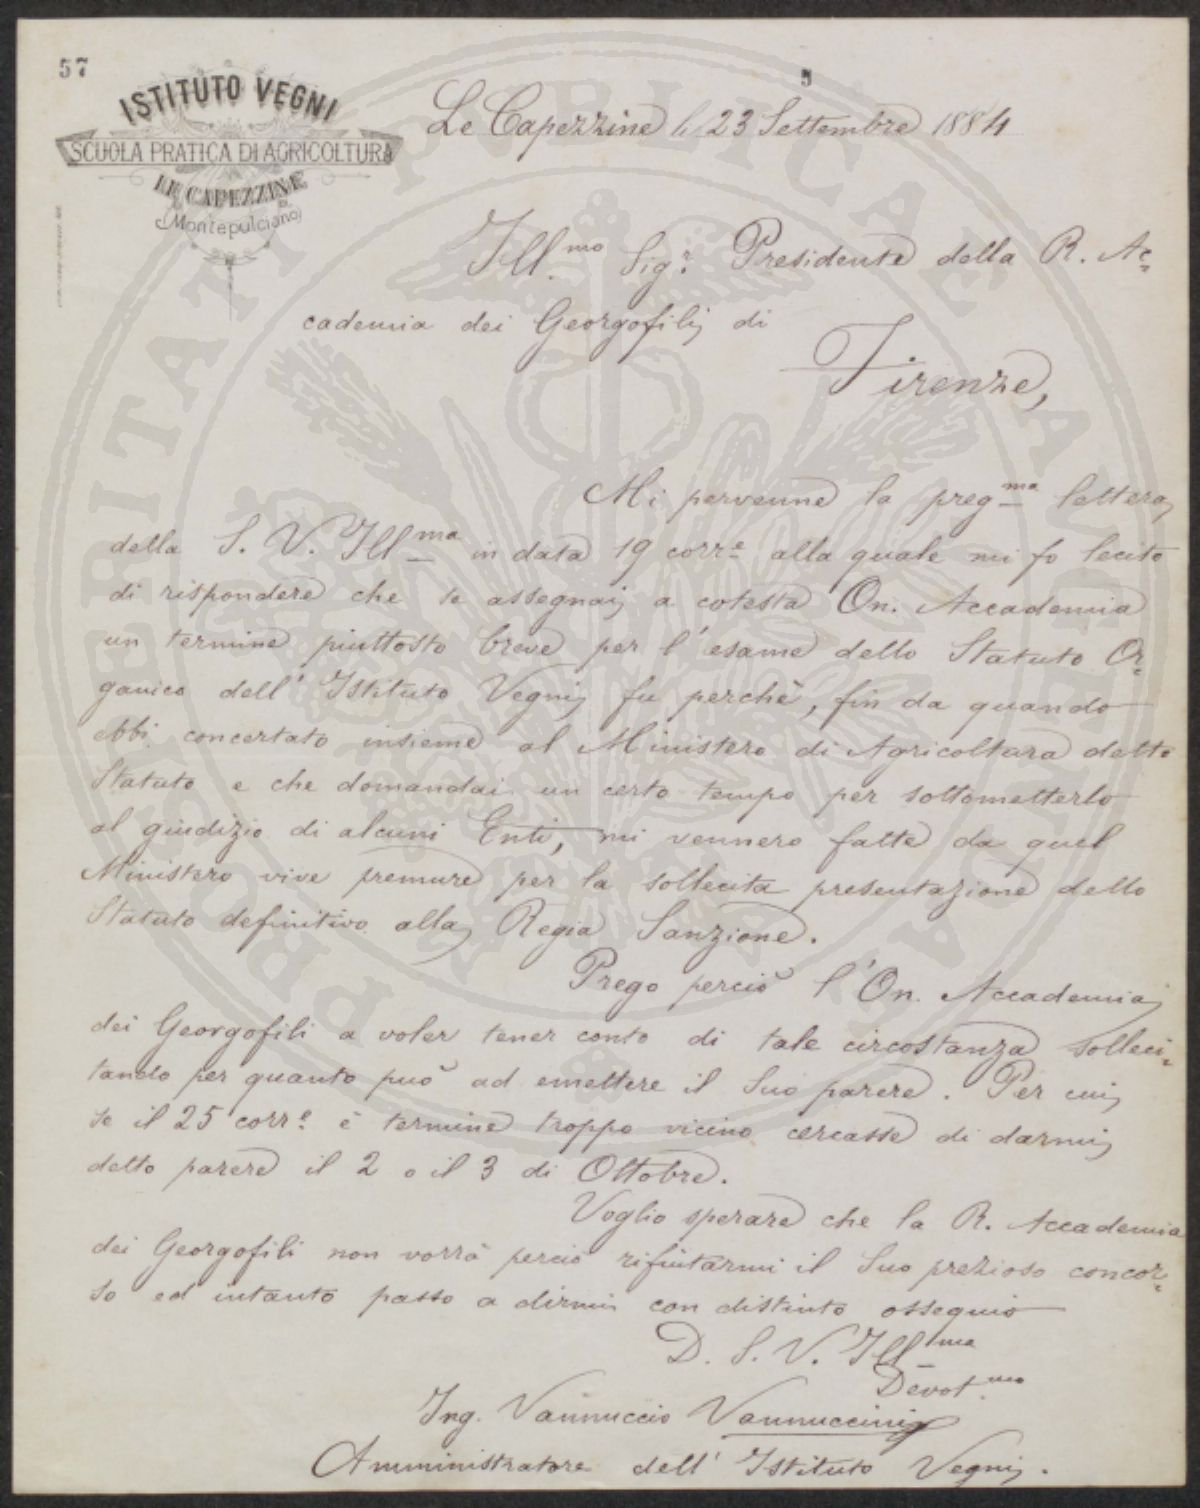 57
ISTITUTO VEGNI
SCUOLA PRATICA DI AGRICOLTURA
LE CAPEZZINE
(Montepulciano)
Le Capezzine li 23 Settembre 1884
Ill.mo Sig.r Presidente della R. Ac=
cademia dei Georgofili di
Firenze,
Mi pervenne la preg.ma lettera
della S. V. Ill.ma in data 19 corr.e alla quale mi fo lecito
di rispondere che se assegnai a cotesta On. Accademia
un termine piuttosto breve per l'esame dello Statuto Or=
ganico dell'Istituto Vegni fu perchè, fin da quando
ebbi concertato insieme al Ministero di Agricoltura detto
Statuto e che domandai un certo tempo per sottometterlo
al giudizio di alcuni Enti, mi vennero fatte da quel
Ministero vive premure per la sollecita presentazione dello
Statuto definitivo alla Regia Sanzione.
Prego perciò l'On. Accademia
dei Georgofili a voler tener conto di tale circostanza solleci=
tando per quanto può ad emettere il Suo parere. Per cui
se il 25 corr.e è termine troppo vicino cercasse di darmi
detto parere il 2 o il 3 di Ottobre.
Voglio sperare che la R. Accademia
dei Georgofili non vorrà perciò rifiutarmi il Suo prezioso concor=
so ed intanto passo a dirmi con distinto ossequio
D. S. V. Ill.ma
Devot.mo
Ing. Vannuccio Vannuccini
Amministratore dell'Istituto Vegni.
PROSPERITATI PUBLICAE AUGENDAE